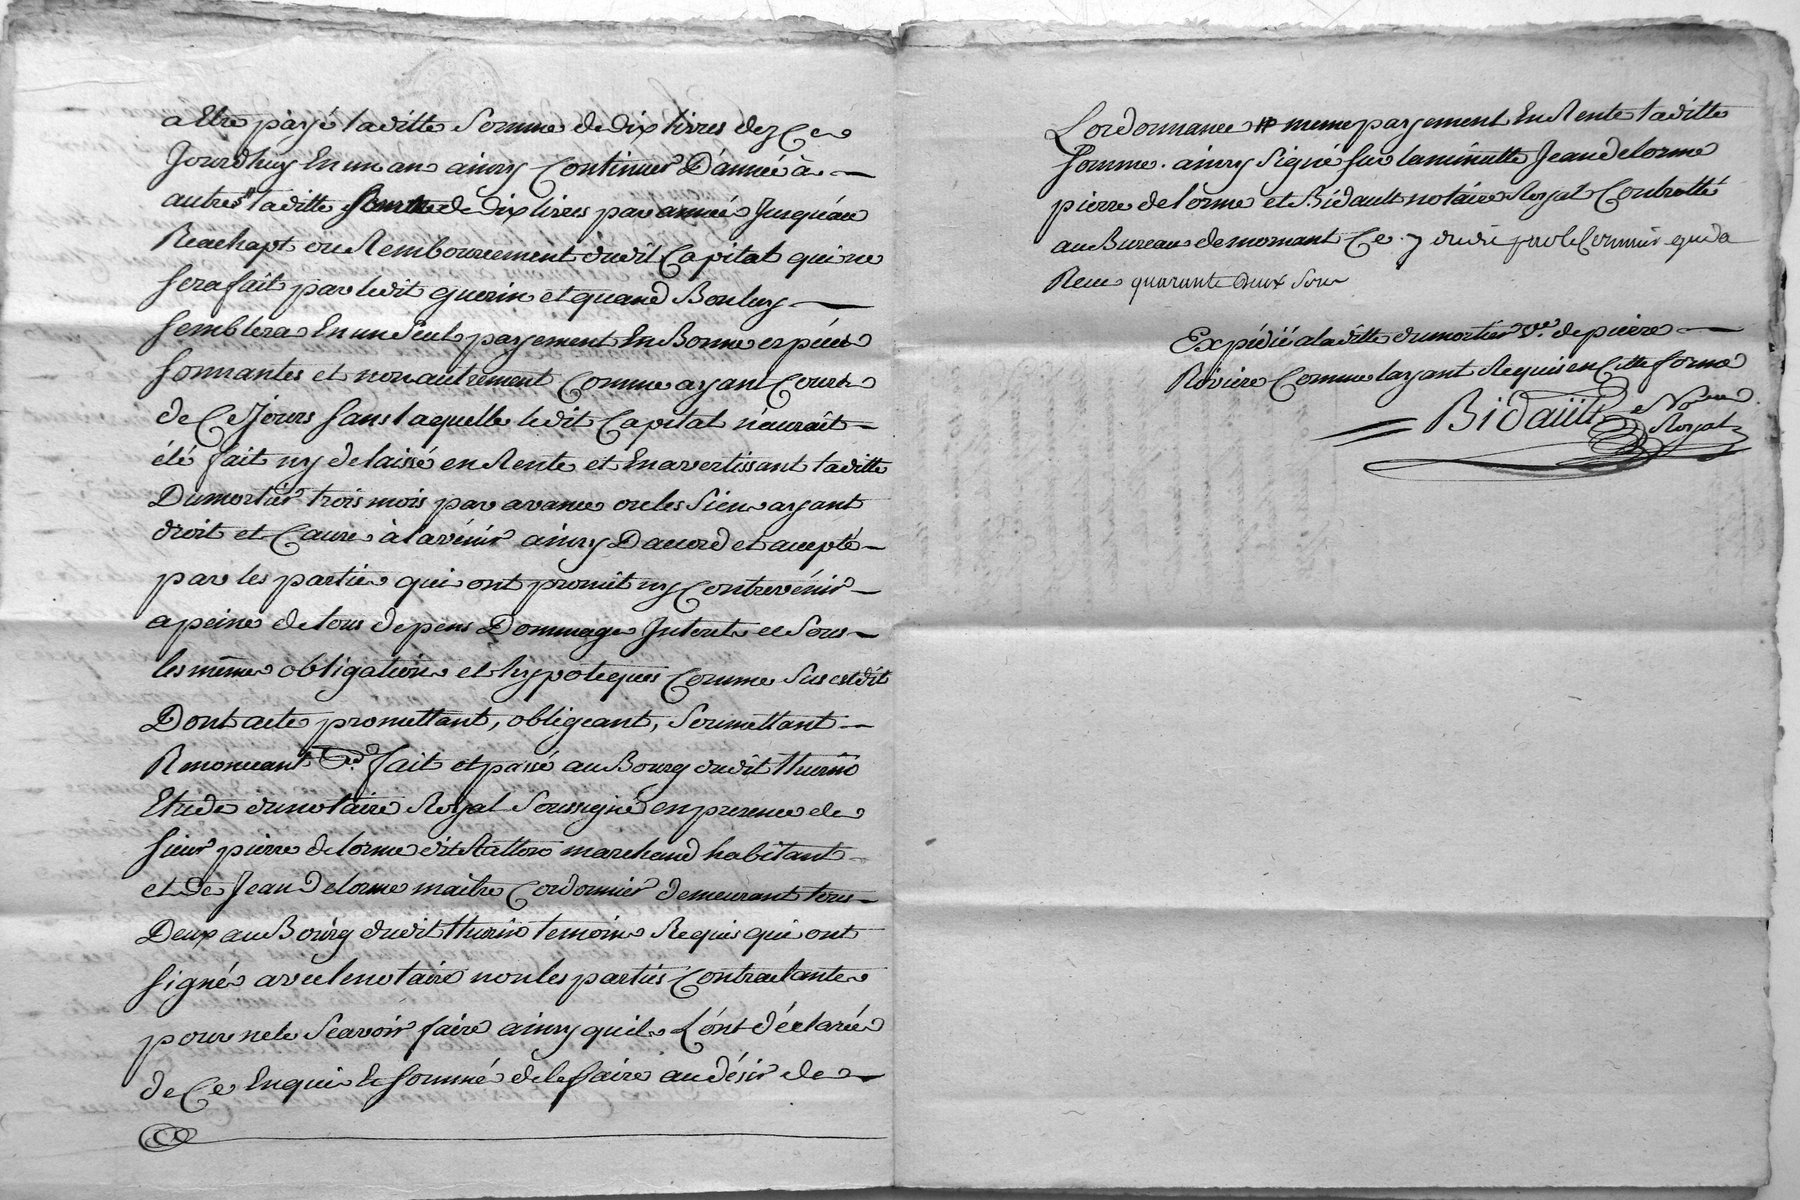 a Etre payé laditte Somme de Dix livres dez Ce
Jourdhuy En un an ainsy Continuer D'année à
autres laditte Somme de Dix livres par année Jusqu'au
Reachapt ou Remboursement dudit Capital qui ne
Sera fait par ledit guerin et quand Bon luy
Semblera En un Seul payement En Bonne espéces
Sonnantes et non autrement Comme ayant Cours
de Ce Jours Sans laquelle ledit Capital n'auroit
été fait ny delaissé en Rente et En avertissant laditte
Dumortier trois mois par avance ou les Siens ayant
droit et Cause à l'avénir ainsy D'acord et accepté
par les parties qui ont promit ny Contrevénir
a peine de tous depens Dommages Interets et Sous
les mêmes obligations et hypoteques Comme Sus est dit
Dont acte promettant, obligeant, Soumettant
Renonceant &a. fait et passé au Bourg dudit thurins
Etude du notaire Royal Soussigné en presence de
Sieur pierre delorme dit marchand habitant
et De Jean Delorme maitre Cordonnier demeurant tous
Deux au Bourg dudit thurins temoins Requis qui ont
Signé avec le notaire non les parties Contractantes
pour ne le Scavoir faire ainsy quils L'ont déclarée
de Ce Enquis & Sommé de le faire au désir de
L'ordonnance # meme payement En Rente laditte
Somme. ainsy Signé Sur la minutte Jean delorme
pierre delorme et Bidault notaire Royal Controllé
au Bureau de mornant Ce. 7 dudit par le Commis qui a
Reçu quarante deux Sous
Expédié a laditte dumortier Ve. de pierre
Riviere Comme layant Requis en Cette forme
Bidault Nore
Royal